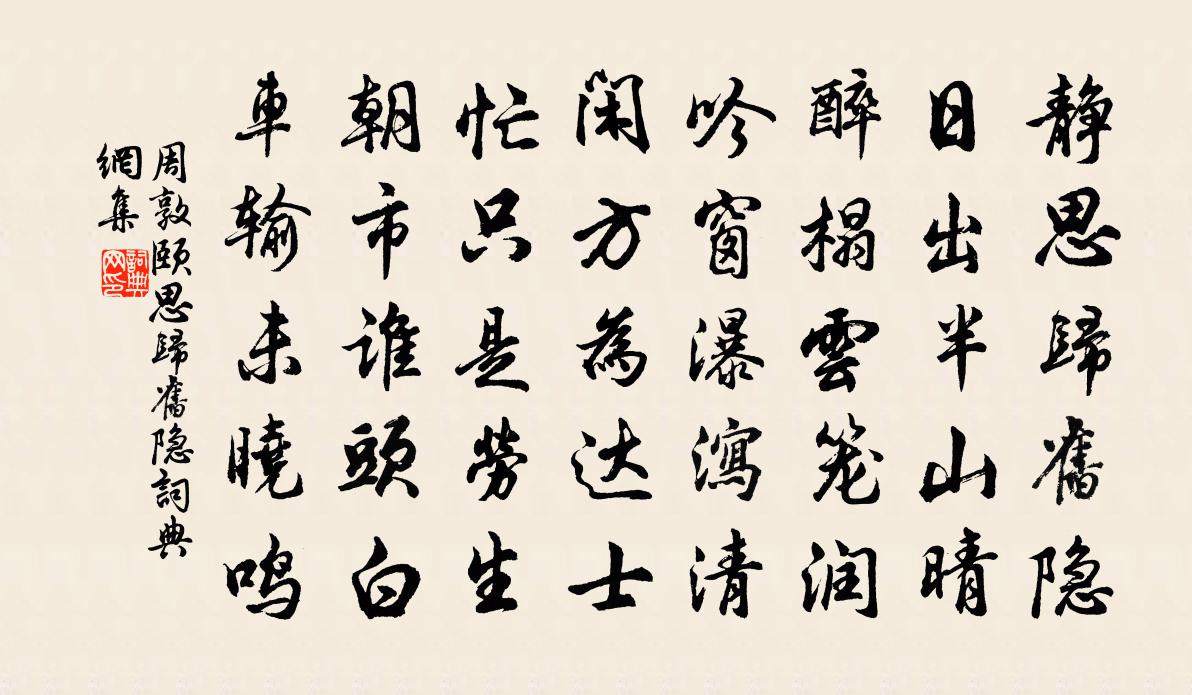 静思歸舊隐
日出半山晴
醉榻雲笼润
吟窗瀑瀉清
闲方為达士
忙只是劳生
朝市谁頭白
車输未曉鸣
周敦颐思歸舊隐詞典
網集
詞典
网印